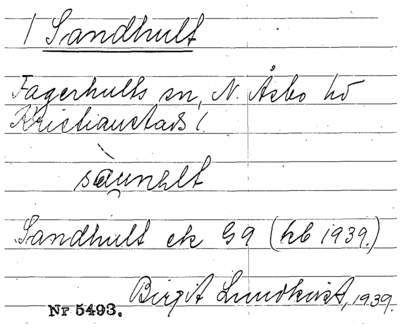 1 Sandhult
Fagerhults sn, N. Åsbo hd
Kristianstads l.
sàu̯nhlt
Sandhult ek G9 (hb 1939.)
Birgit Lundkvist, 1939.
Nr 5493.